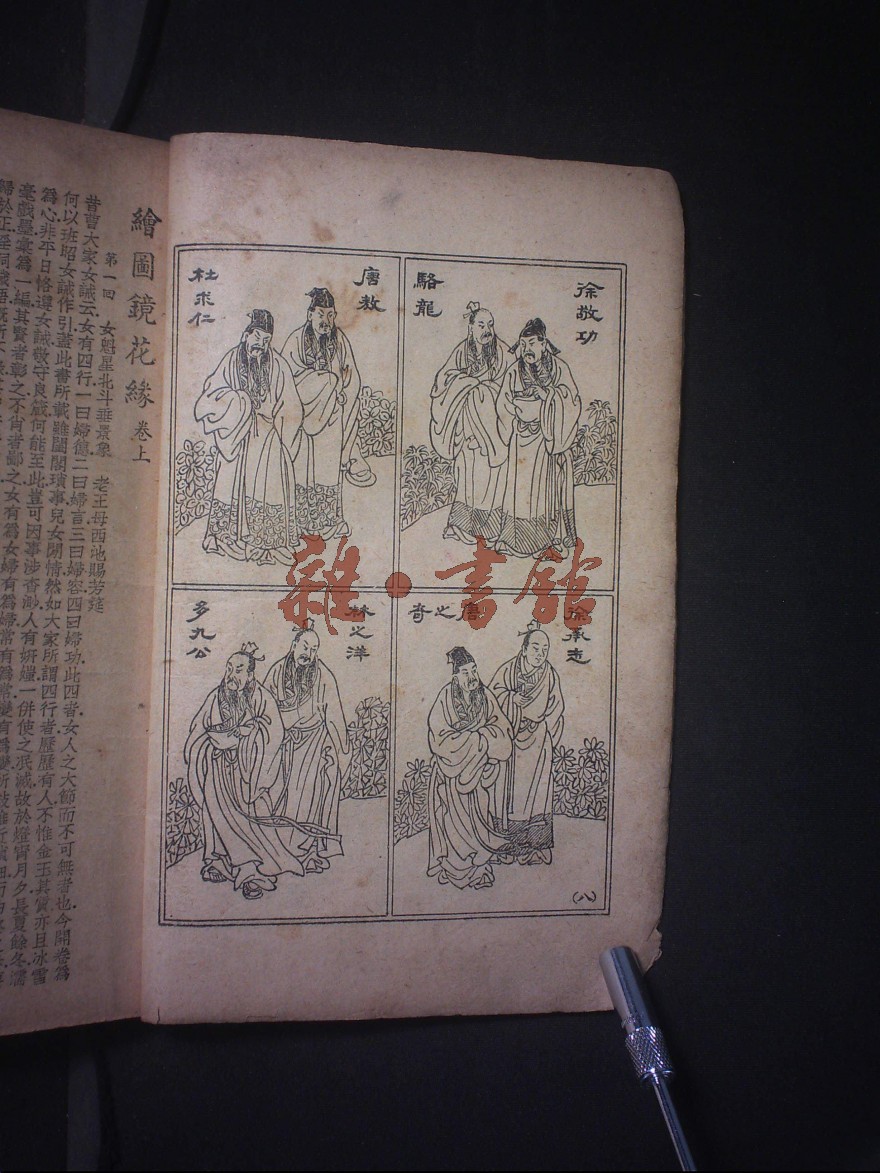 徐敬功
駱龍
唐敖
杜求仁
徐承志
唐之奇
林之洋
多九公
(八)
雜·書館
繪圖鏡花緣 卷上
第一回 女魁星北斗垂景象 老王母西池賜芳筵
昔曹大家女誡云女有四行一曰婦德二曰婦言三曰婦容四曰婦功此四者女人之大節而不可無者也今開卷爲
何以班昭女誡作引蓋此書所載雖閨閣瑣事兒女閒情然如大家所謂四行者歷歷有人不惟金玉其質亦且冰雪
爲心非平日恪遵女誡敬守良箴何能至此豈可因事涉杳渺人有妍媸一併使之泯滅故於燈宵月夕長夏餘冬濡
毫戲墨彙爲一編其賢者彰之不肖者鄙之女有爲女婦有爲婦常有爲常變有爲變所
歸於正